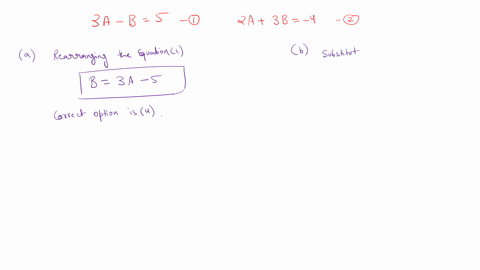 3A - B = 5 - ① 2A + 3B = -4 - ②
(a) Rearranging the Equation (1)
B = 3A - 5
Correct option is (4).
(b) Substitut